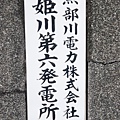 黒部川電力株式会社
姫川第六発電所